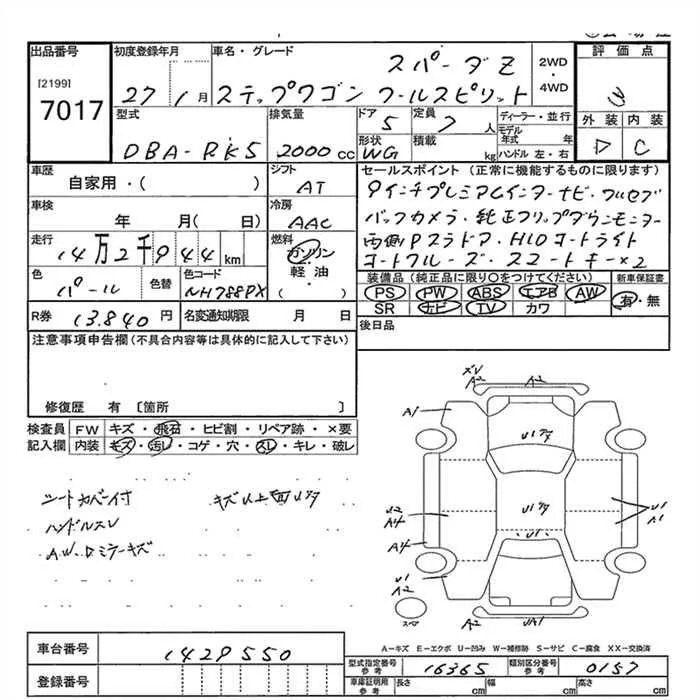 出品番号
[2199]
7017
初度登録年月
27 / 1月
車名・グレード
スパーダZ
ステップワゴン クールスピリット
2WD
・
4WD
評価点
外装 内装
D C
型式
DBA-RK5
排気量
2000 cc
ドア
5
定員
7 人
形状
WG
積載
kg
ディーラー・並行
モデル年式 年
ハンドル 左・右
車歴
自家用・( )
シフト
AT
車検
年 月( 日)
冷房
AAC
走行
14万2千944 km
燃料
ガソリン
・
軽油
・
( )
色
パール
色替
色コード
NH788PX
R券
13.840 円
名変通知期限 月 日
セールスポイント (正常に機能するものに限ります)
9インチプレミアムインターナビ・フルセグ
バックカメラ・純正フリップダウンモニター
両側Pスラドア・HIDコートライト
コートクルーズ・スマートキー×2
装備品 (純正品に限り○をつけてください)
PS PW ABS エアB AW
SR ナビ TV カワ
新車保証書
有・無
後日品
注意事項申告欄 (不具合内容等は具体的に記入して下さい)
修復歴 有 〔箇所 〕
検査員記入欄
FW キズ・飛石・ヒビ割・リペア跡・×要
内装 キズ・汚レ・コゲ・穴・スレ・キレ・破レ
シートカバー付
キズ以上凹
ハンドルスレ
A.W.Dミラーキズ
A2
A2
A1
U1
U2
A4
U1
A1
U1
A4
U1
A2
A2
UA1
スペア
A-キズ E-エクボ U-凹み W-補修跡 S-サビ C-腐食 XX-交換済
車台番号
1429550
登録番号
型式指定番号
参考
16365
類別区分番号
参考
0157
車庫証明用
参考
長さ cm
幅 cm
高さ cm